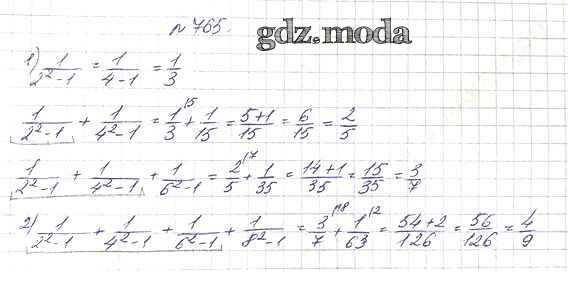 № 765. gdz.moda
1) 1/(2²-1) = 1/(4-1) = 1/3
1/(2²-1) + 1/(4²-1) = 1/3 ⁽⁵ + 1/15 = (5+1)/15 = 6/15 = 2/5
1/(2²-1) + 1/(4²-1) + 1/(6²-1) = 2/5 ⁽⁷ + 1/35 = (14+1)/35 = 15/35 = 3/7
2) 1/(2²-1) + 1/(4²-1) + 1/(6²-1) + 1/(8²-1) = 3/7 ⁽¹⁸ + 1/63 ⁽² = (54+2)/126 = 56/126 = 4/9